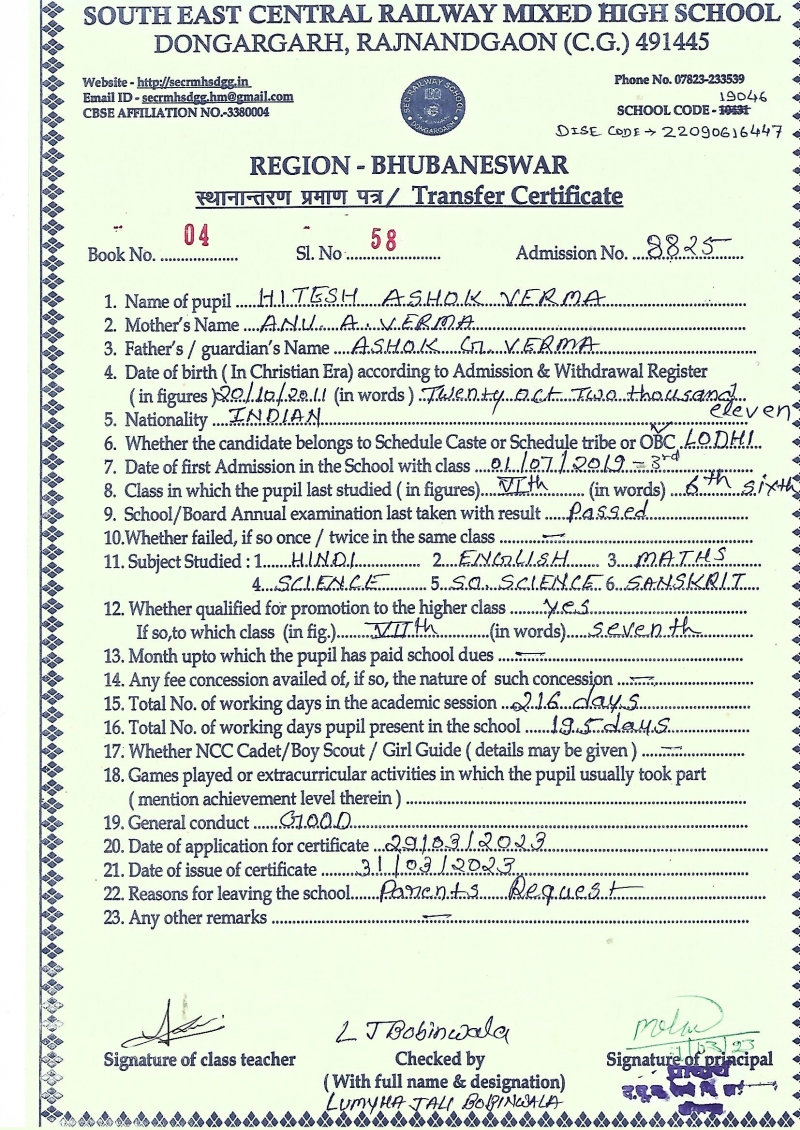 SOUTH EAST CENTRAL RAILWAY MIXED HIGH SCHOOL
DONGARGARH, RAJNANDGAON (C.G.) 491445
Website - http://secrmhsdgg.in
Phone No. 07823-233539
Email ID - secrmhsdgg.hm@gmail.com
19046
CBSE AFFILIATION NO.-3380004
SCHOOL CODE - 10131
DISE CODE → 22090616447
SEC RAILWAY SCHOOL
DONGARGARH
REGION - BHUBANESWAR
स्थानान्तरण प्रमाण पत्र / Transfer Certificate
Book No. 04 Sl. No 58 Admission No. 8825
1. Name of pupil HITESH ASHOK VERMA
2. Mother's Name ANU. A. VERMA
3. Father's / guardian's Name ASHOK G. VERMA
4. Date of birth ( In Christian Era) according to Admission & Withdrawal Register
( in figures ) 20/10/2011 (in words ) Twenty oct Two thousand
eleven
5. Nationality INDIAN
6. Whether the candidate belongs to Schedule Caste or Schedule tribe or OBC LODHI
7. Date of first Admission in the School with class 01/07/2019 - 3rd
8. Class in which the pupil last studied ( in figures) VIth (in words) 6th sixth
9. School/Board Annual examination last taken with result Passed
10.Whether failed, if so once / twice in the same class —
11. Subject Studied : 1 HINDI 2 ENGLISH 3 MATHS
4. SCIENCE 5 SO. SCIENCE 6 SANSKRIT
12. Whether qualified for promotion to the higher class yes
If so,to which class (in fig.) VIIth (in words) seventh
13. Month upto which the pupil has paid school dues —
14. Any fee concession availed of, if so, the nature of such concession —
15. Total No. of working days in the academic session 216 days
16. Total No. of working days pupil present in the school 195 days
17. Whether NCC Cadet/Boy Scout / Girl Guide ( details may be given ) —
18. Games played or extracurricular activities in which the pupil usually took part
( mention achievement level therein )
19. General conduct GOOD
20. Date of application for certificate 29/03/2023
21. Date of issue of certificate 31/03/2023
22. Reasons for leaving the school Parents Request
23. Any other remarks —
L J Bobinwala
Signature of class teacher Checked by Signature of principal
(With full name & designation)
LUMYHA JALI BOBINWALA
प्राचार्य